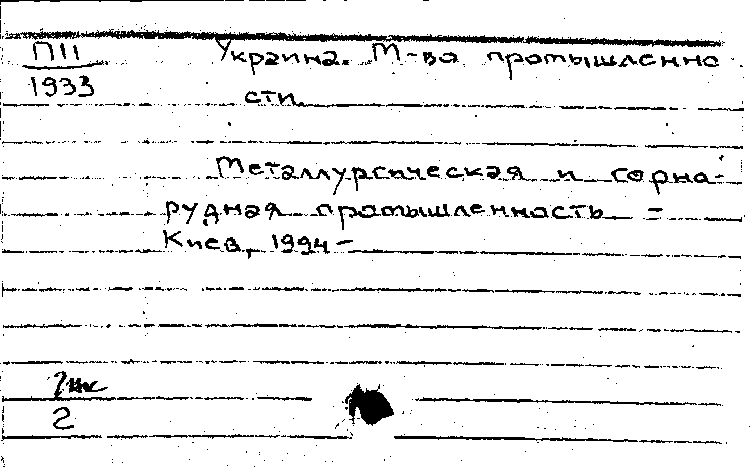 П11 Украина. М-во промышленно
1933 сти
Металлургическая и горно-
рудная промышленность –
Киев, 1994–
2